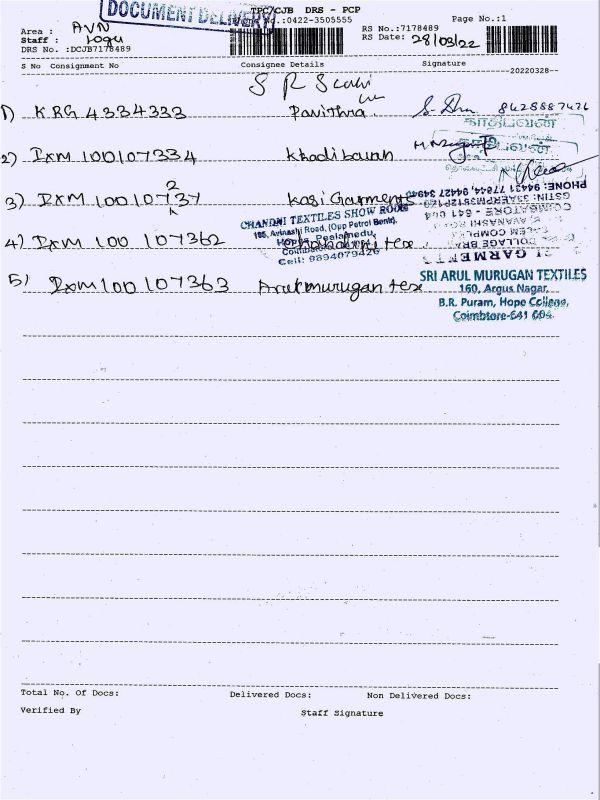 DOCUMENT DELIVERY
TPC/CJB DRS - PCP
No.:0422-3505555
Page No.:1
Area : AVN
Staff : Logu
DRS No. :DCJB7178489
RS No.:7178489
RS Date: 28/03/22
S No Consignment No Consignee Details Signature
20220328
1) KRG 4334333 Pavithra 8428887476
2) IXM 100107334
காதிபவன்
3) IXM 10010737 Kasi Garments
2
PHONE: 94431 77644, 94427
COIMBATORE - 641 004
CHANDNI TEXTILES SHOW ROOM
185, Avinashi Road, (Opp Petrol Bunk),
Hope, Peelamedu,
Cell: 9894079426
4) IXM 100 107362
5) IXM 100 107363 Arulmurugan tex
SRI ARUL MURUGAN TEXTILES
160, Argus Nagar,
B.R. Puram, Hope College,
Coimbtore-641 004.
Total No. Of Docs: Delivered Docs: Non Delivered Docs:
Verified By Staff Signature